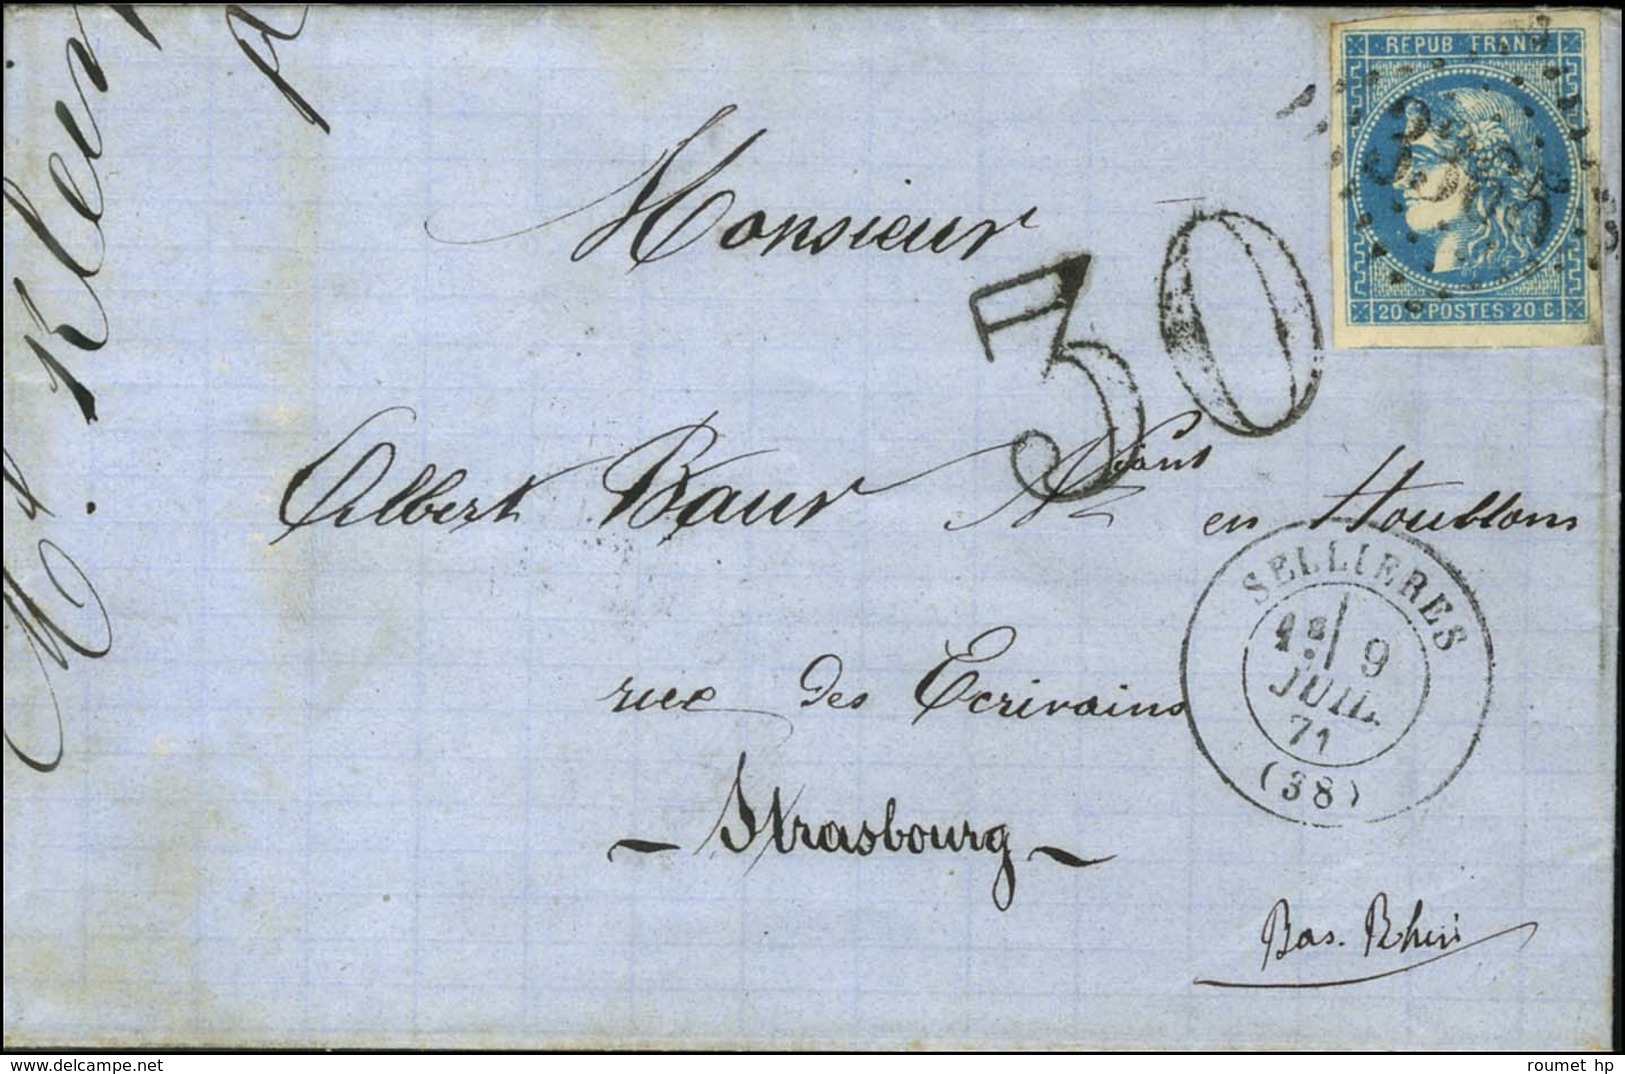 REPUB FRANC
20 C POSTES 20 C
Monsieur
30
Albert Baur Nég.ant en Houblons
rue des Ecrivains
Strasbourg
Bas. Rhin
SELLIERES
1e 9
JUIL.
71
(38)
M. Klein
roumet hp